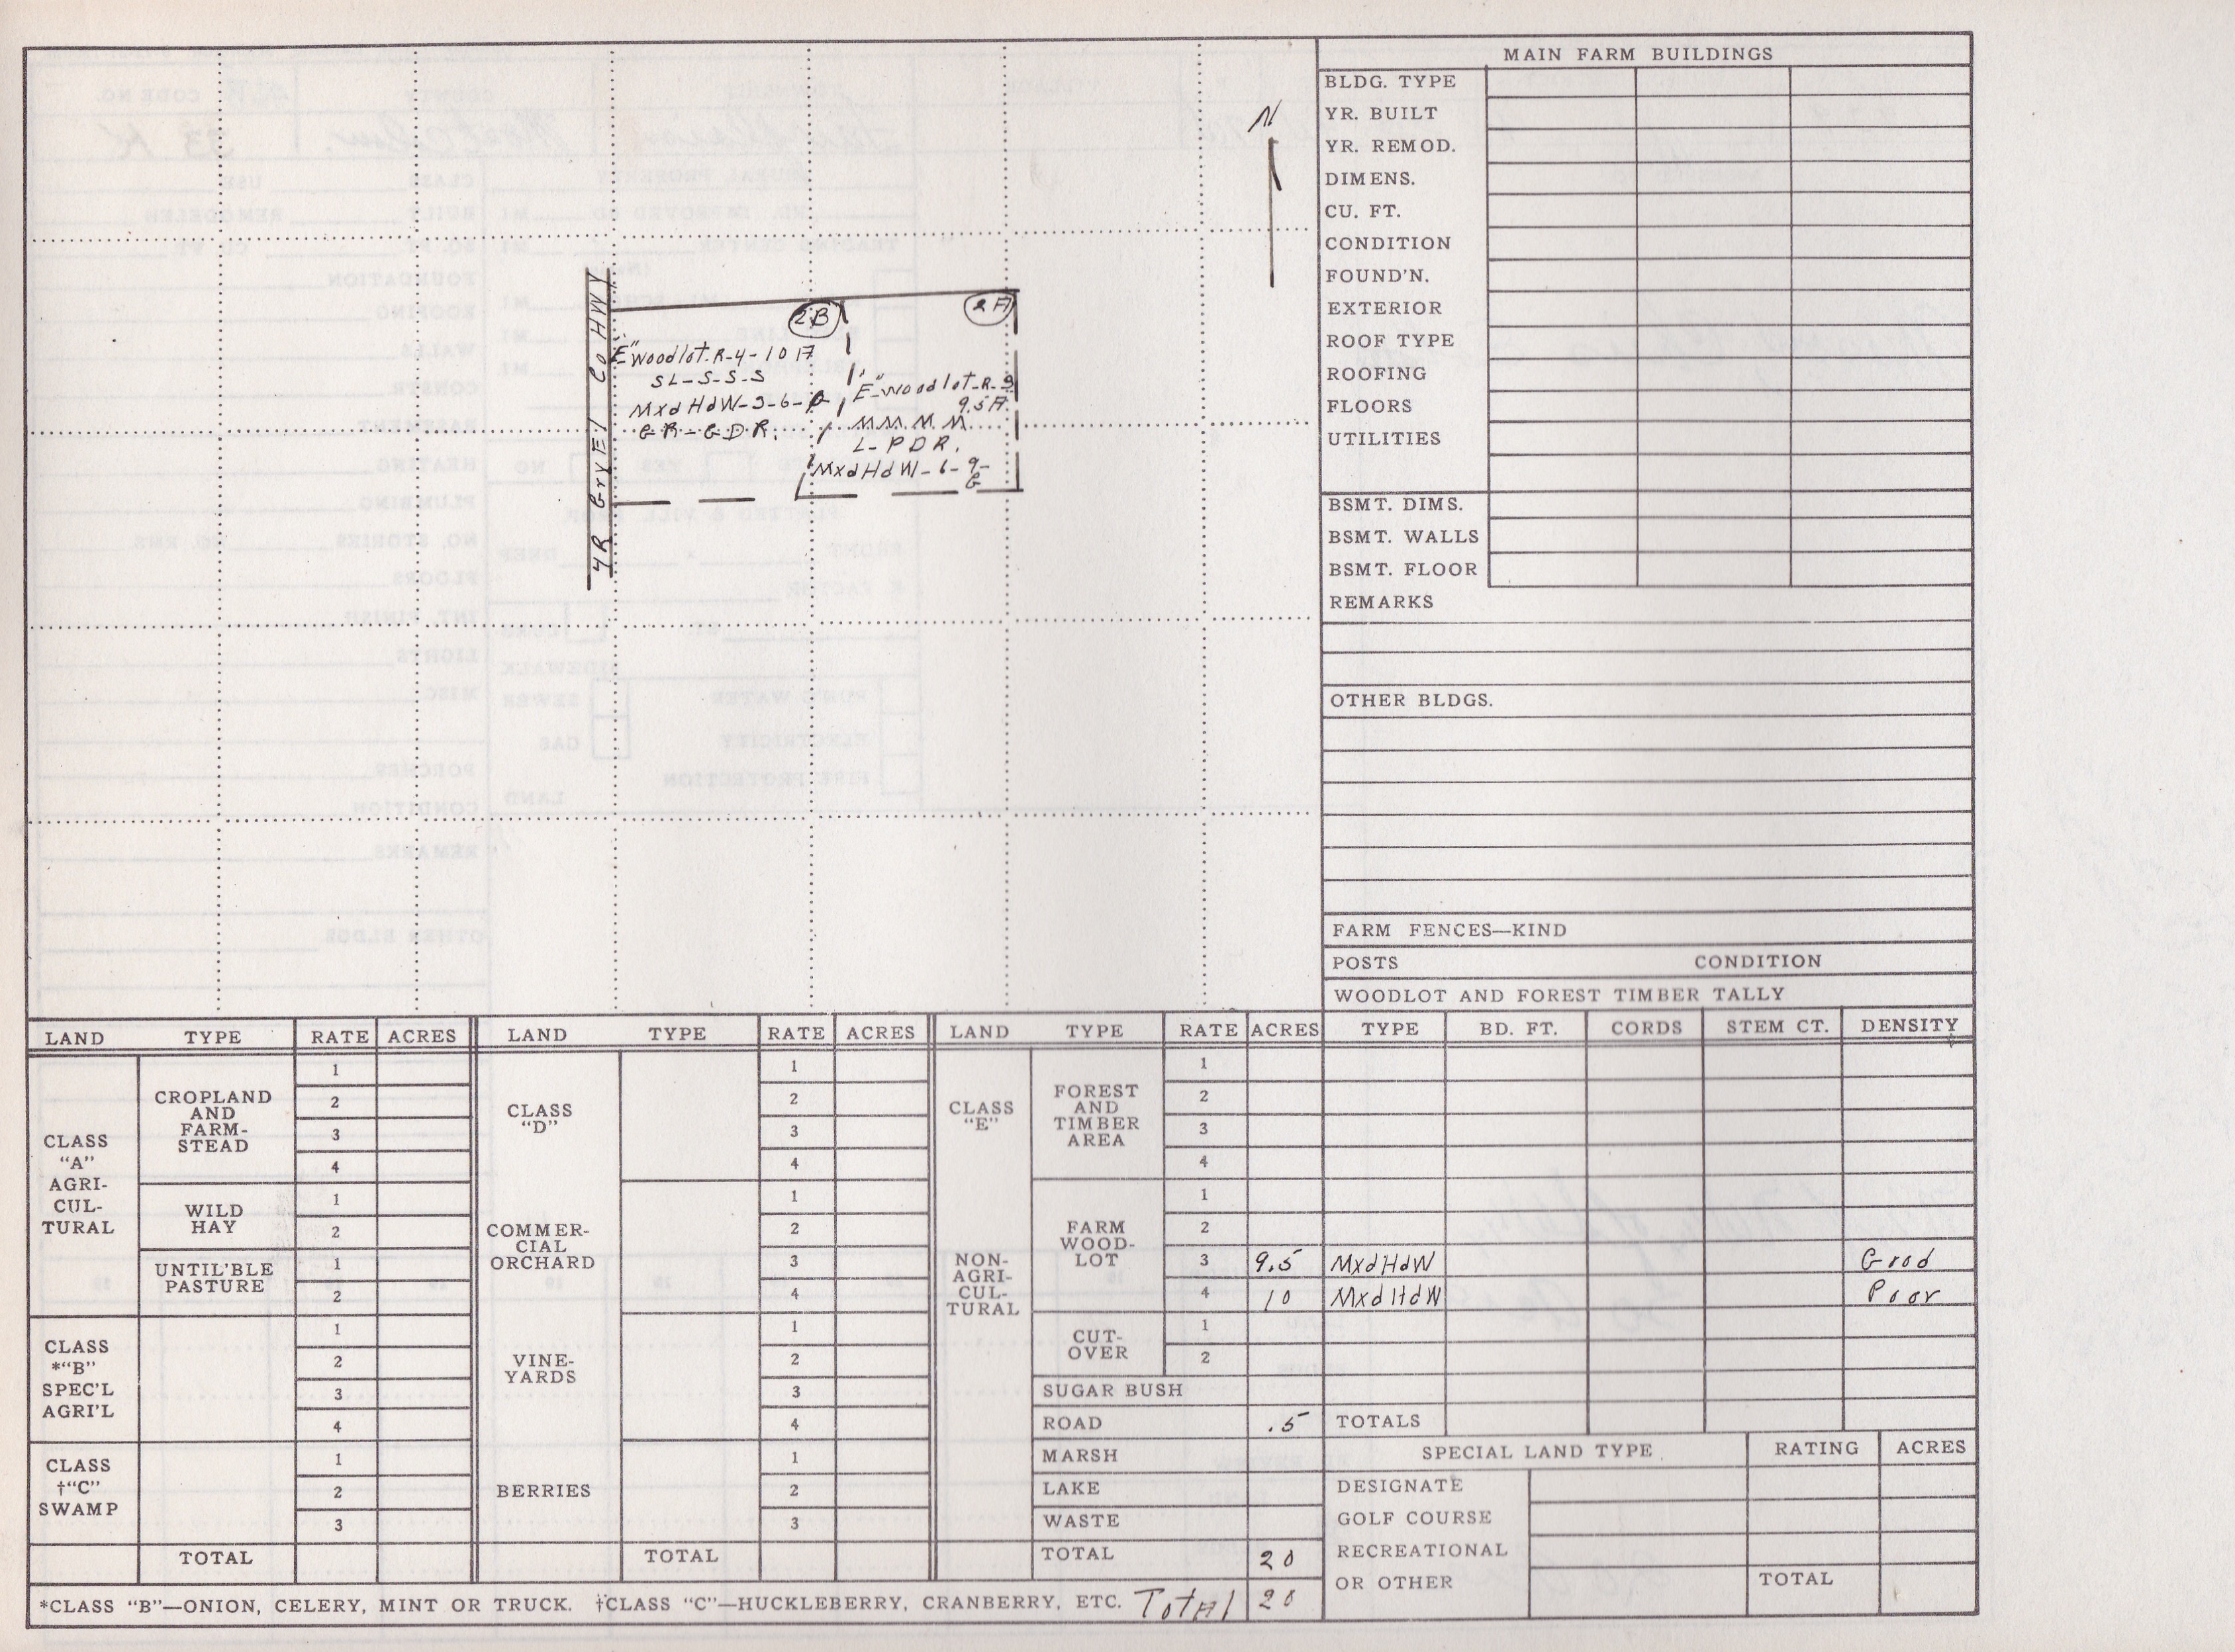 N
4R GrvEl CoHWY
2B
2A
"E" Woodlot. R-4-10 A
SL-S-S-S
MxdHdW-3-6-P
G-R-G-D-R.
"E" Woodlot-R-3
9.5A.
M.M.M.M.
L-PDR.
MxdHdW-6-9-
G
MAIN FARM BUILDINGS
BLDG. TYPE
YR. BUILT
YR. REMOD.
DIMENS.
CU. FT.
CONDITION
FOUND'N.
EXTERIOR
ROOF TYPE
ROOFING
FLOORS
UTILITIES
BSMT. DIMS.
BSMT. WALLS
BSMT. FLOOR
REMARKS
OTHER BLDGS.
FARM FENCES—KIND
POSTS CONDITION
WOODLOT AND FOREST TIMBER TALLY
LAND TYPE RATE ACRES LAND TYPE RATE ACRES LAND TYPE RATE ACRES TYPE BD. FT. CORDS STEM CT. DENSITY
CLASS
"A"
AGRI-
CUL-
TURAL
CROPLAND
AND
FARM-
STEAD
1
2
3
4
WILD
HAY
1
2
UNTIL'BLE
PASTURE
1
2
CLASS
*"B"
SPEC'L
AGRI'L
1
2
3
4
CLASS
†"C"
SWAMP
1
2
3
TOTAL
CLASS
"D"
1
2
3
4
COMMER-
CIAL
ORCHARD
1
2
3
4
VINE-
YARDS
1
2
3
4
BERRIES
1
2
3
TOTAL
CLASS
"E"
NON-
AGRI-
CUL-
TURAL
FOREST
AND
TIMBER
AREA
1
2
3
4
FARM
WOOD-
LOT
1
2
3 9.5 MxdHdW Good
4 10 MxdHdW Poor
CUT-
OVER
1
2
SUGAR BUSH
ROAD .5 TOTALS
MARSH
LAKE
WASTE
TOTAL 20
SPECIAL LAND TYPE RATING ACRES
DESIGNATE
GOLF COURSE
RECREATIONAL
OR OTHER
TOTAL
*CLASS "B"—ONION, CELERY, MINT OR TRUCK. †CLASS "C"—HUCKLEBERRY, CRANBERRY, ETC. Total 20